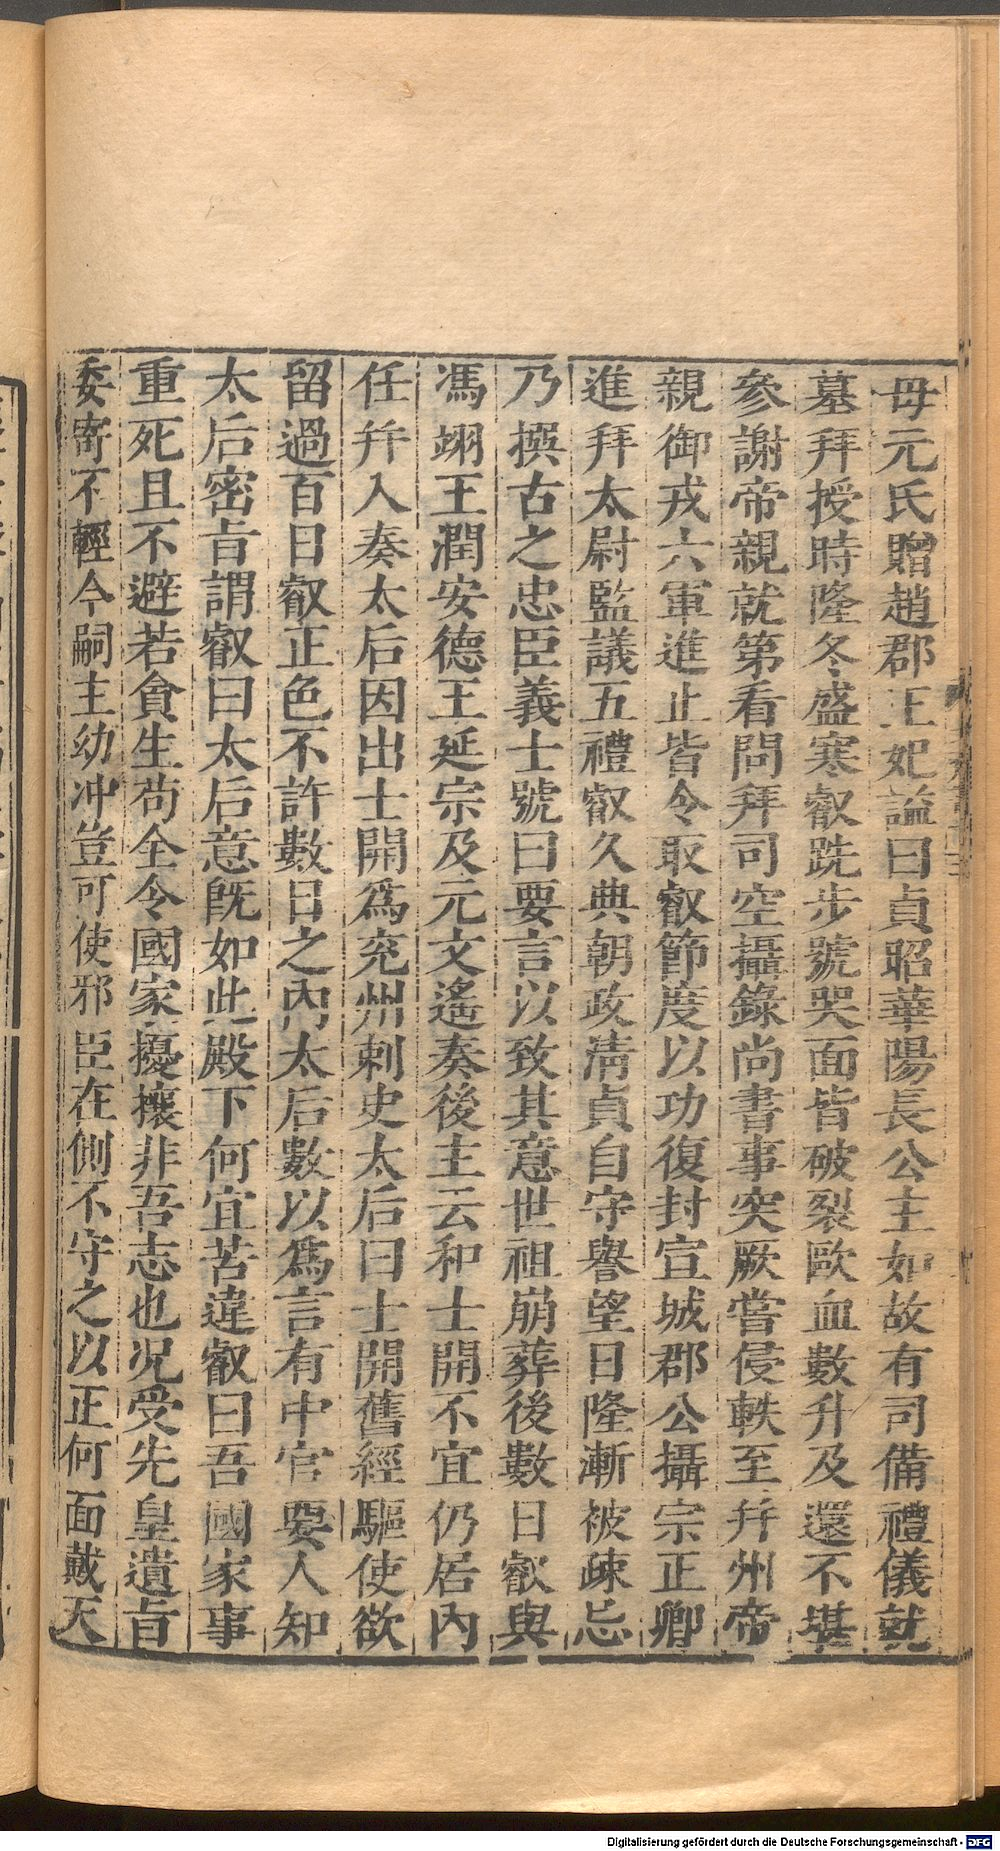 母元氏贈趙郡王妃謚曰貞昭華陽長公主如故有司備禮儀就
墓拜授時隆冬盛寒叡跣步號哭面皆破裂歐血數升及還不堪
參謝帝親就第看問拜司空攝錄尚書事突厥嘗侵軼至并州帝
親御戎六軍進止皆令取叡節度以功復封宣城郡公攝宗正卿
進拜太尉監議五禮叡久典朝政清貞自守譽望日隆漸被疎忌
乃撰古之忠臣義士號曰要言以致其意世祖崩葬後數日叡與
馮翊王潤安德王延宗及元文遙奏後主云和士開不宜仍居內
任并入奏太后因出士開為兖州刺史太后曰士開舊經驅使欲
留過百日叡正色不許數日之內太后數以為言有中官要人知
太后密旨謂叡曰太后意旣如此殿下何宜苦違叡曰吾國家事
重死且不避若貪生苟全令國家擾攘非吾志也况受先皇遺旨
委寄不輕今嗣主幼冲豈可使邪臣在側不守之以正何面戴天
Digitalisierung gefördert durch die Deutsche Forschungsgemeinschaft - DFG